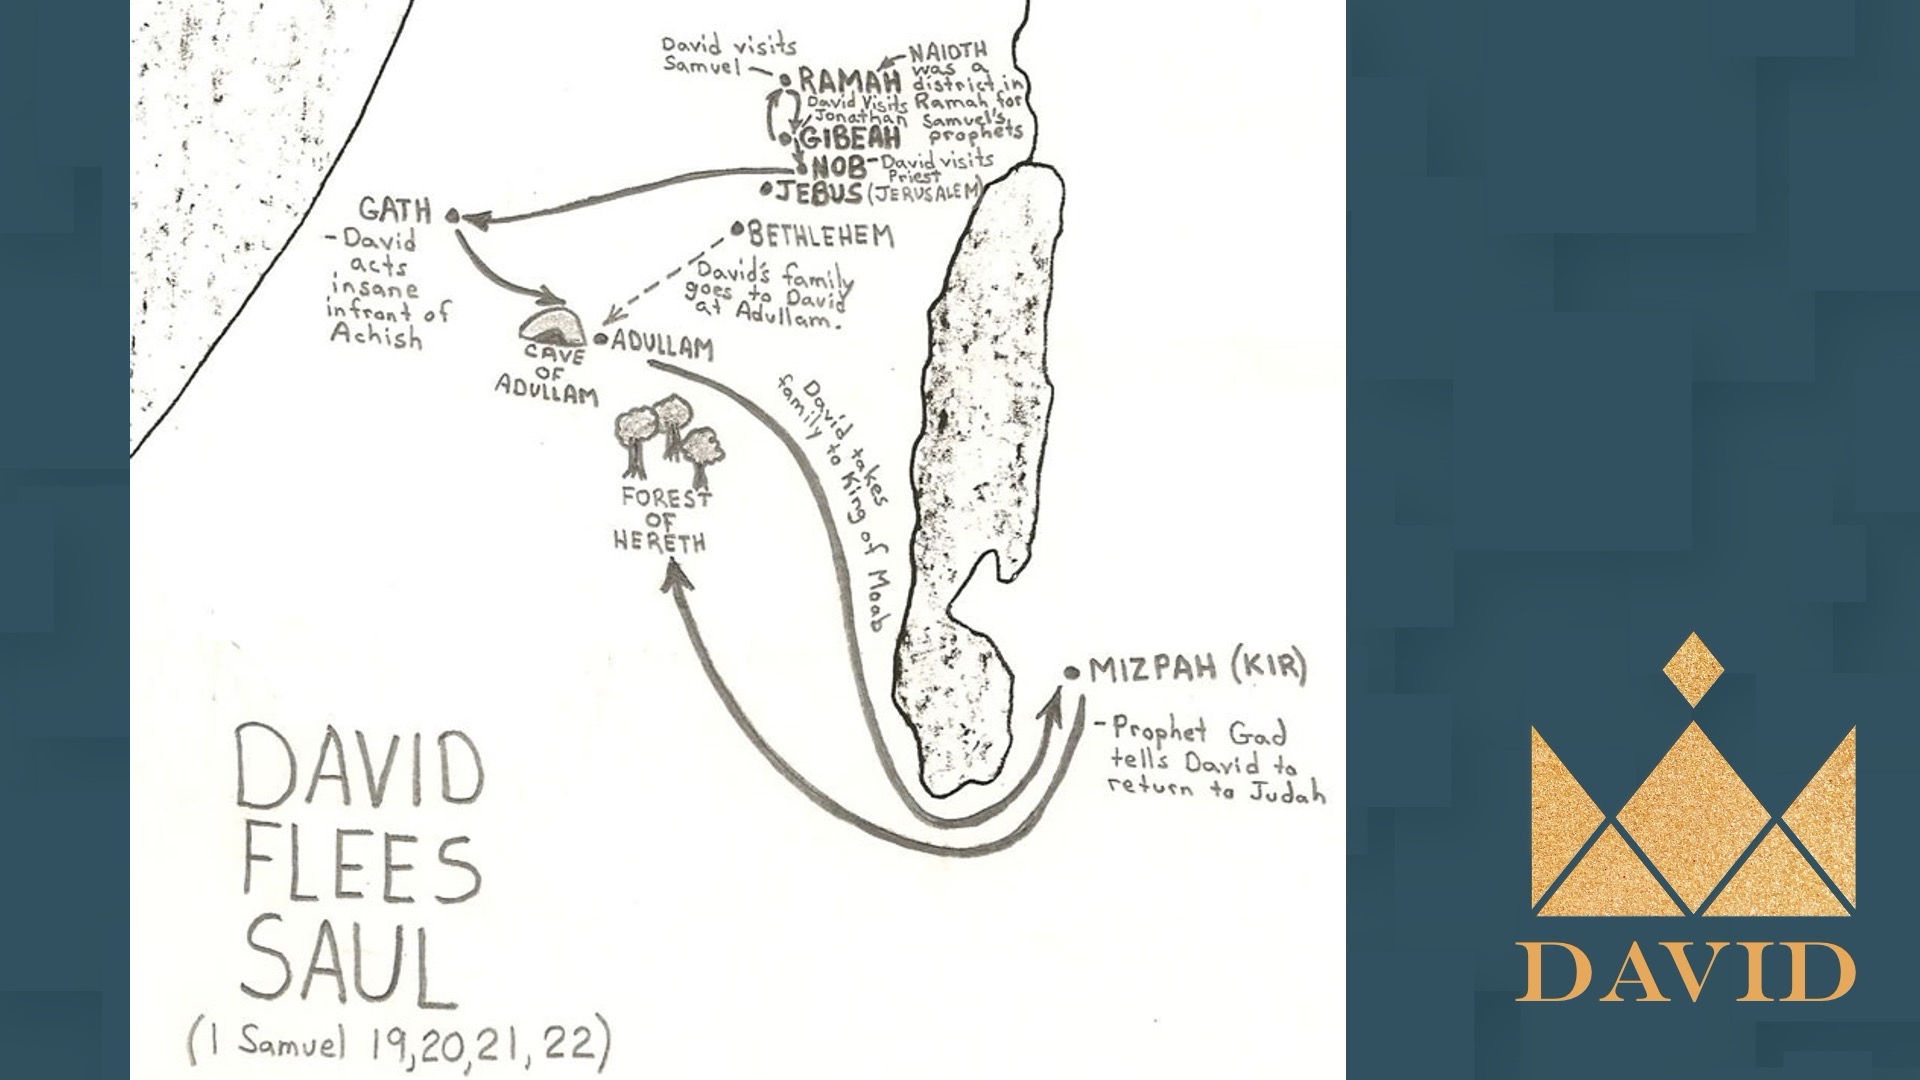 David visits
Samuel
RAMAH
NAIOTH
was a
district in
Ramah for
Samuel's
prophets
David Visits
Jonathan
GIBEAH
NOB - David visits
Priest
JEBUS (JERUSALEM)
GATH
- David
acts
insane
infront of
Achish
BETHLEHEM
David's family
goes to David
at Adullam.
CAVE
OF
ADULLAM
ADULLAM
David takes
family to King of Moab
FOREST
OF
HERETH
MIZPAH (KIR)
- Prophet Gad
tells David to
return to Judah
DAVID
FLEES
SAUL
(1 Samuel 19,20,21,22)
DAVID